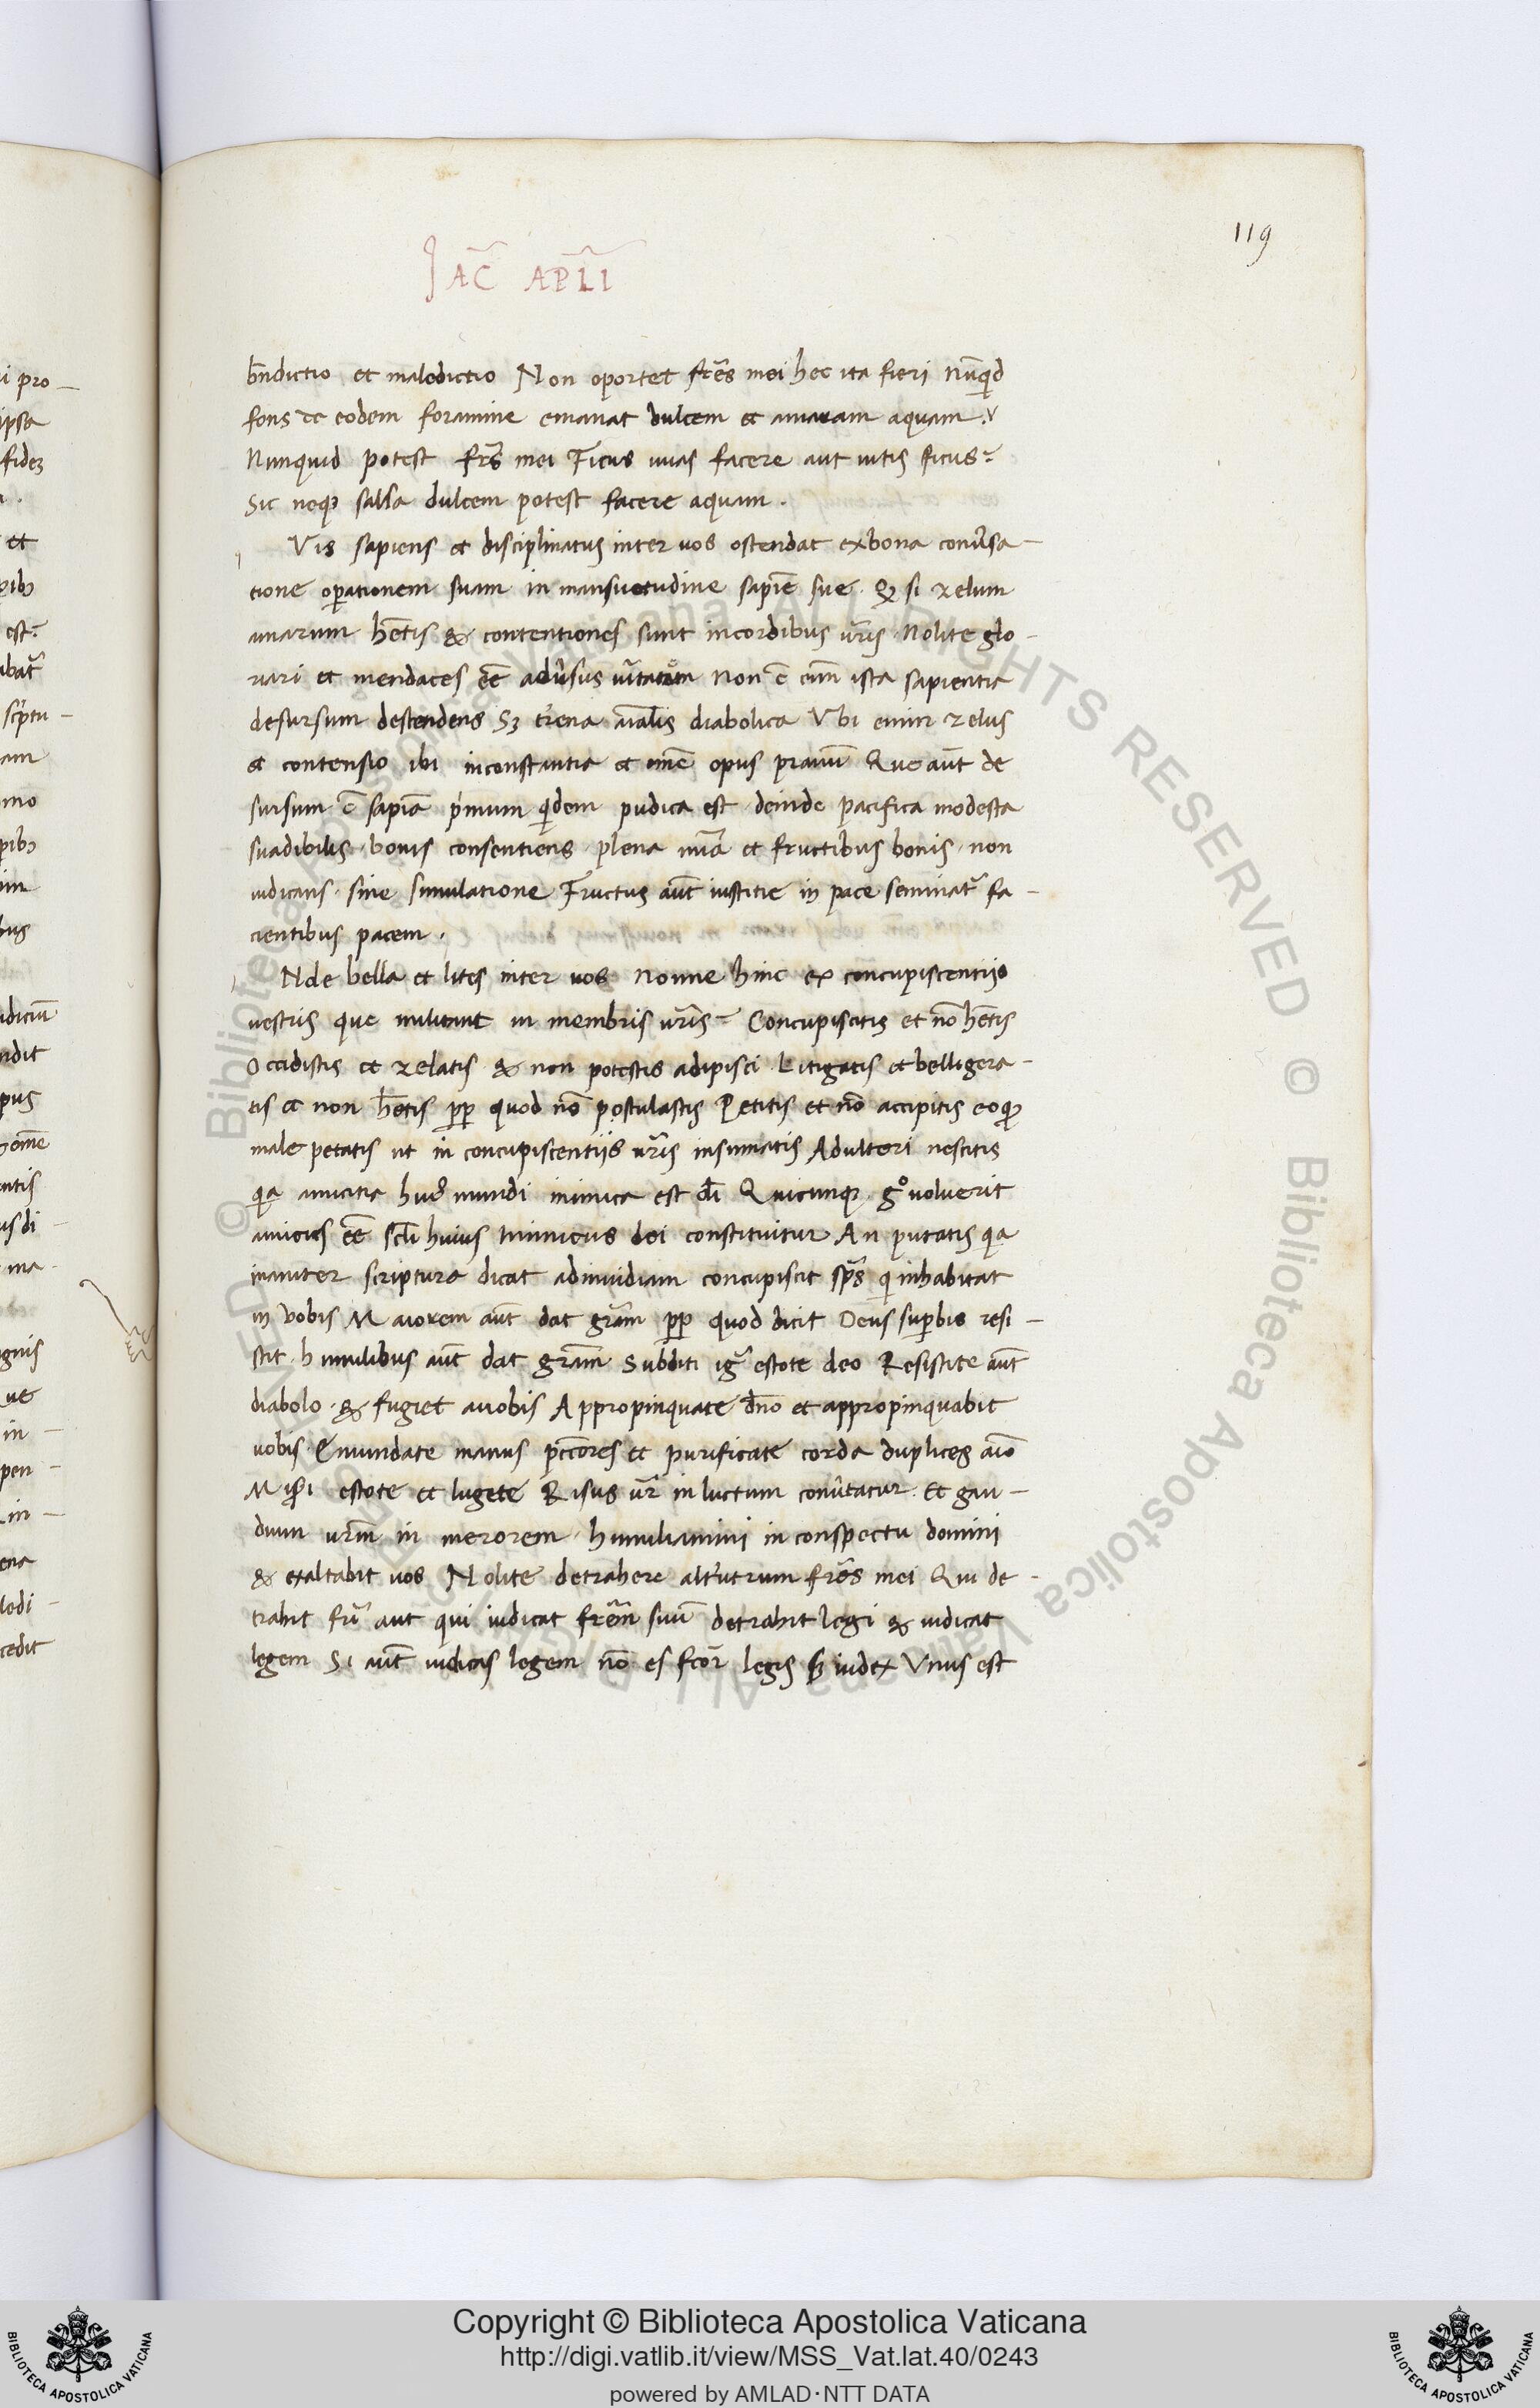 119
JAC̄ APL̄I
bn̄dictio et maledictio Non oportet fr̄es mei hec ita fieri nūqd
fons de eodem foramine emanat dulcem et amaram aquam?
Nunquid potest frs̄ mei Ficus uuas facere aut uitis ficus?
Sic neqꝫ salsa dulcem potest facere aquam .
Vis sapiens et disciplinatus inter uos ostendat ex bona conu̓sa-
tione oꝑationem suam in mansuetudine sapiē sue. Qꝫ si zelum
amarum hētis & contentiones sunt in cordibus ur̄is . Nolite glo-
riari et mendaces eē adu̓sus uītatem Non ē enī ista sapientia
desursum descendens Sꝫ tr̓ena aīalis diabolica Vbi enim zelus
et contensio ibi inconstantia et om̄e opus prauū Que aūt de
sursum ē sapīa p̓mum qidem pudica est deinde pacifica modesta
suadibilis . bonis consentiens . plena mīa et fructibus bonis . non
iudicans . sine simulatione Fructus aūt iustitie in pace seminat̃ fa-
cientibus pacem .
Nde bella et lites inter uos Nonne hinc ex concupiscentiis
uestris que militant in membris ur̄is? Concupiscitis et nō hētis
Occidistis et zelatis & non potestis adipisci . Litigatis et belligera-
tis et non hētis ꝓꝑ quod nō postulastis Petitis et nō accipitis eo qꝫ
male petatis ut in concupiscentiis ur̄is insumatis Adulteri nescitis
qa amicitia huiꝰ mundi inimica est dī Quicunqꝫ gͦ uoluerit
amicus eē scl̄i huius Inimicus dei constituitur An putatis qa
inaniter scriptura dicat ad inuidiam concupiscit sp̄s qi inhabitat
in vobis Maiorem aūt dat gram̄ ꝓꝑ quod dicit Deus suꝑbis resi-
stit . humilibus aūt dat gram̄ Subditi ig̃ estote deo Resistite aūt
diabolo . & fugiet a uobis Appropinquate dn̄o et appropinquabit
uobis . Emundate manus pctōres et purificate corda duplices aīo
Misꝑi estote et lugete Risus ur̄ in luctum conu̓tatur . Et gau-
dium urm̄ in merorem . humiliamini in conspectu domini
& exaltabit uos Nolite detrahere alt̓utrum fr̄es mei Qui de-
trahit fr̄i aut qui iudicat frēm suū detrahit legi & iudicat
legem Si aūt iudicas legem nō es fcōr legis sꝫ iudex Vnus est
Copyright © Biblioteca Apostolica Vaticana
http://digi.vatlib.it/view/MSS_Vat.lat.40/0243
powered by AMLAD·NTT DATA